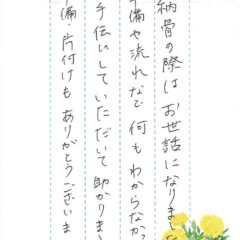 納骨の際はお世話になりました
備や流れなど何もわからなか
手伝いしていただいて助かりまし
備・片付けもありがとうございま